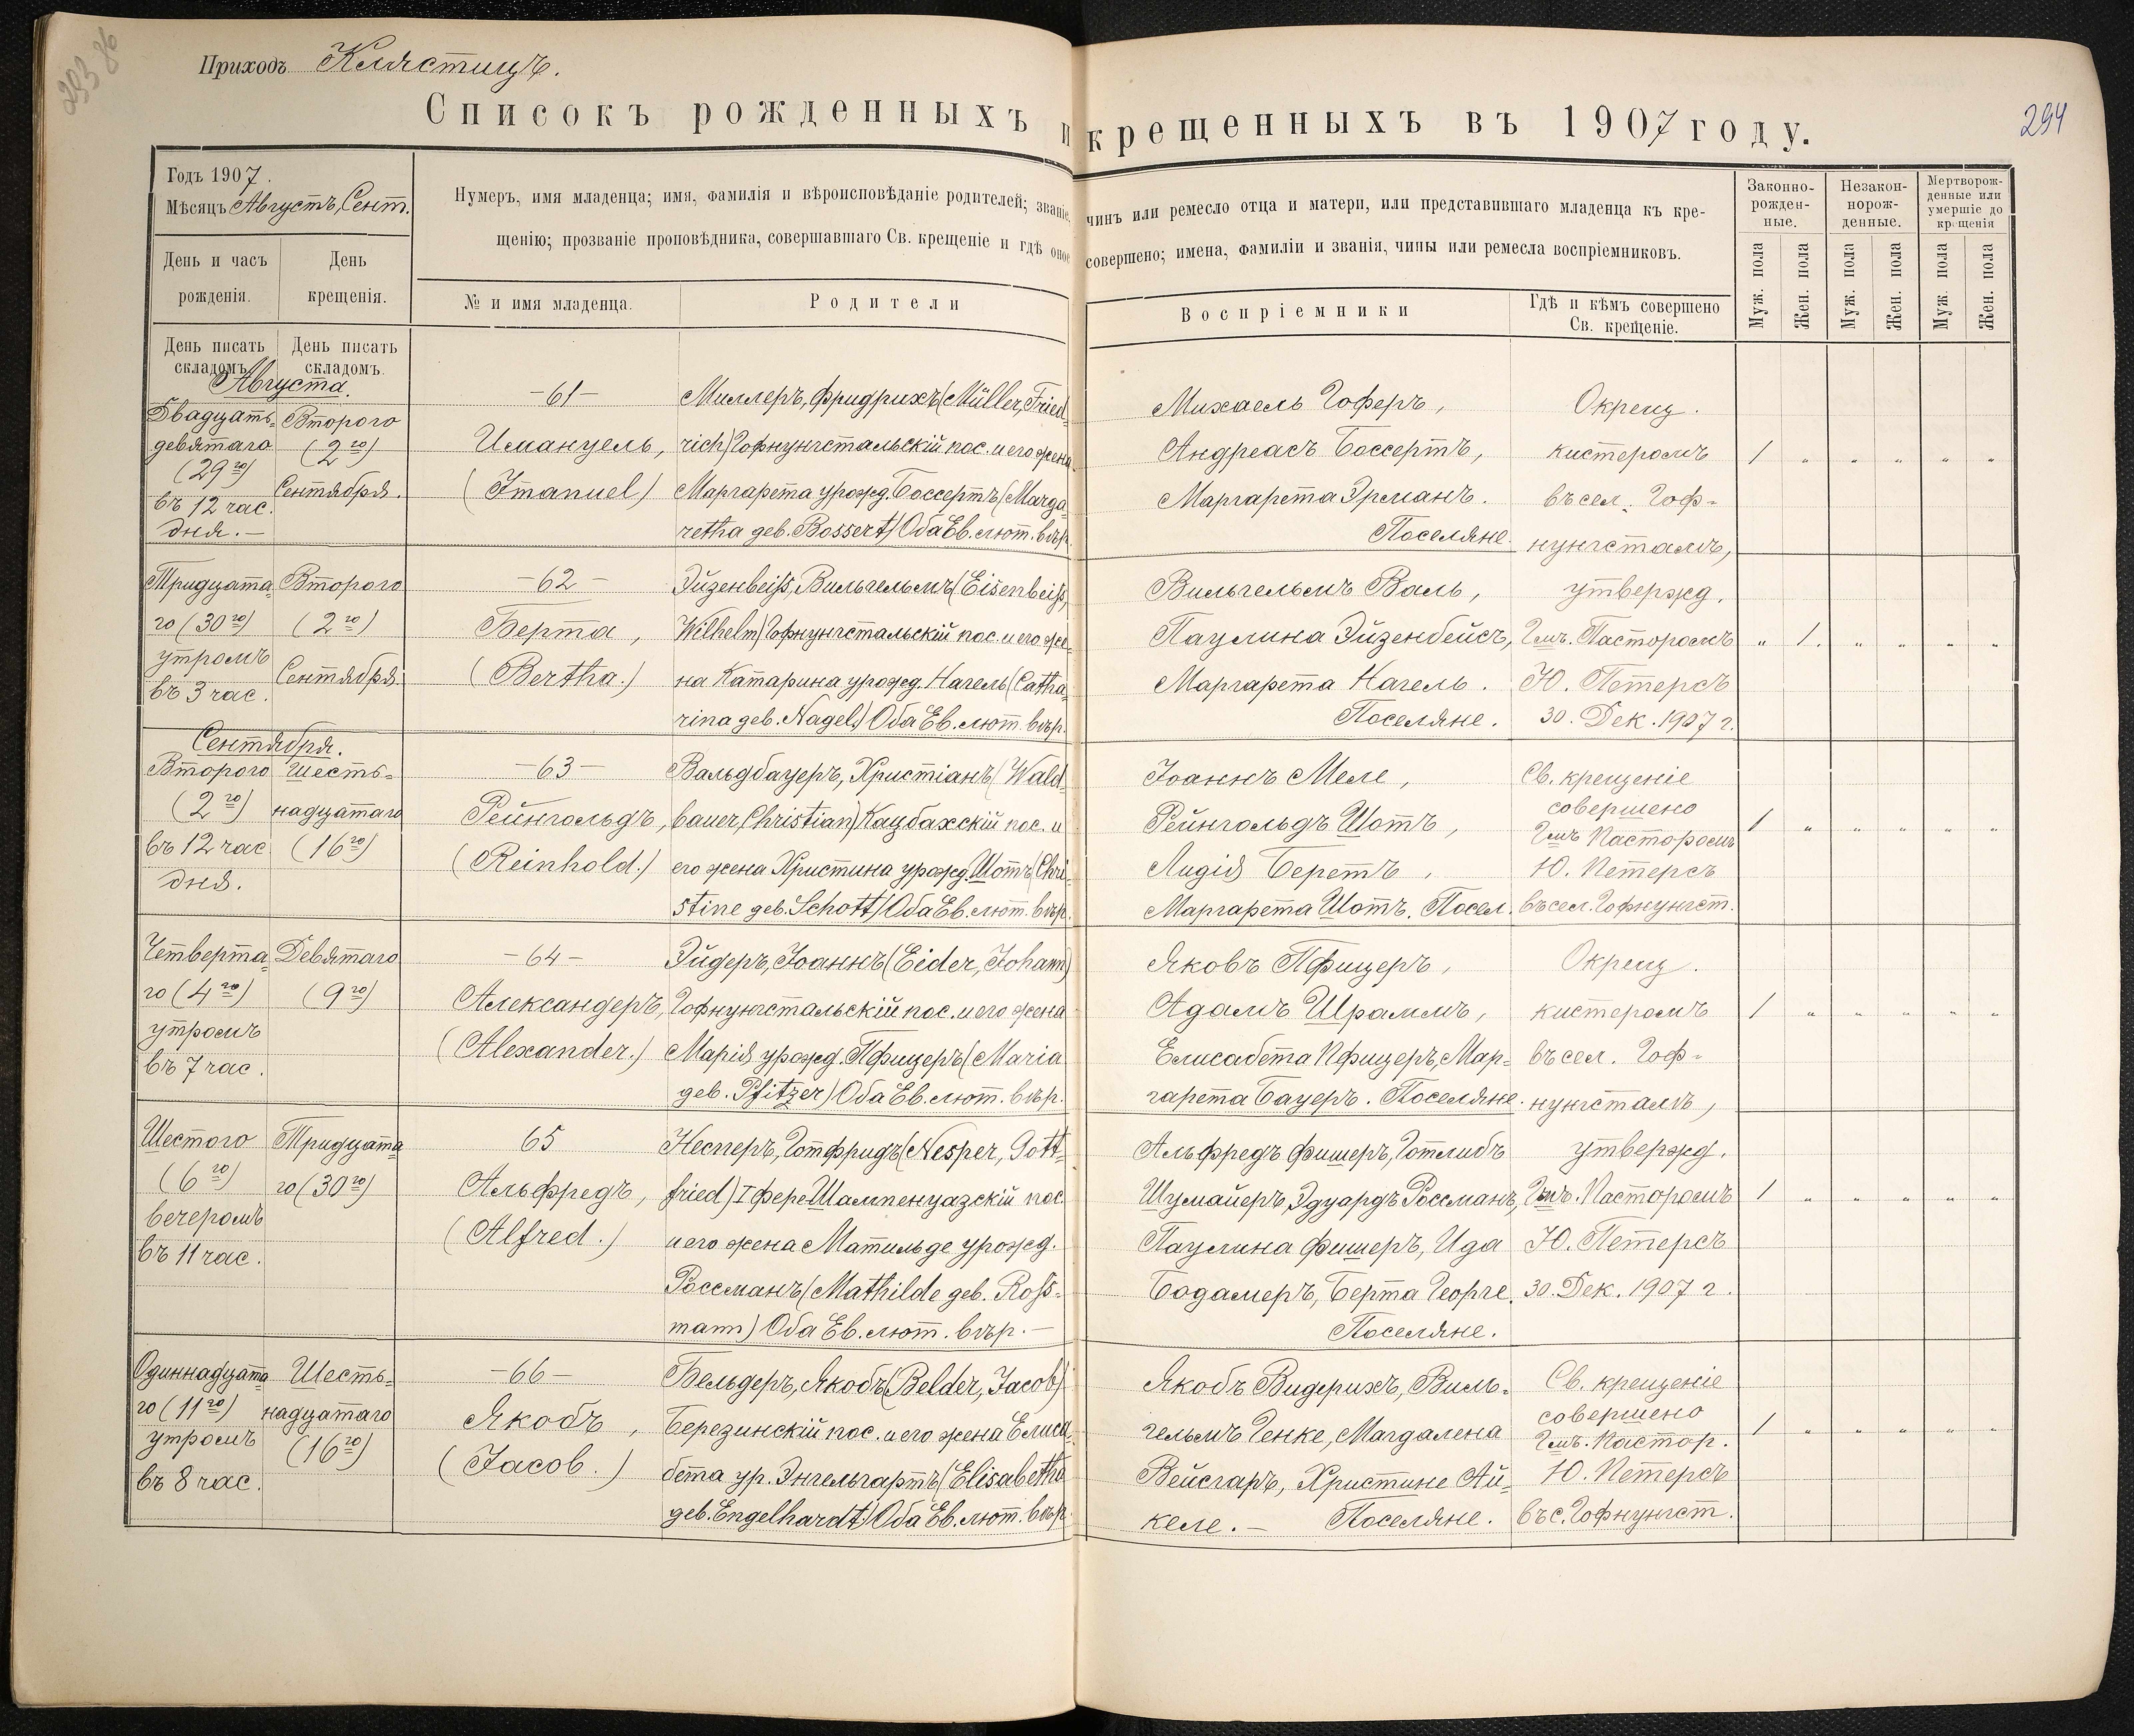 293 86
Приходъ Клястицъ.
Списокъ рожденныхъ и крещенныхъ въ 1907 году.
294
Годъ 1907.
Мѣсяцъ Августъ, Сент.
День и часъ рожденія.
День крещенія.
День писать складомъ
День писать складомъ.
Нумеръ, имя младенца; имя, фамилія и вѣроисповѣданіе родителей; званіе, чинъ или ремесло отца и матери, или представившаго младенца къ кре-
щенію; прозваніе проповѣдника, совершавшаго Св. крещеніе и гдѣ оное совершено; имена, фамиліи и званія, чины или ремесла воспріемниковъ.
№ и имя младенца.
Родители
Воспріемники
Гдѣ и кѣмъ совершено
Св. крещеніе.
Законно-
рожден-
ные.
Незакон-
норож-
денные.
Мертворож-
денные или
умершіе до
крещенія
Муж. пола
Жен. пола
Муж. пола
Жен. пола
Муж. пола
Жен. пола
Августа.
Двадцать-
девятаго
(29го)
въ 12 час.
дня.—
Второго
(2го)
Сентября.
—61—
Имануель,
(Imanuel)
Миллеръ, Фридрихъ (Müller, Fried-
rich) Гофнунгстальскій пос. и его жена
Маргарета урожд. Боссертъ (Marga-
retha geb. Bossert) Оба Ев. лют. вѣр.
Михаель Гоферъ,
Андреасъ Боссертъ,
Маргарета Эрманъ.
Поселяне.
Окрещ.
кистеромъ
въ сел. Гоф-
нунгсталъ,
1 " " " " "
Тридцата-
го (30го)
утромъ
въ 3 час.
Второго
(2го)
Сентября.
—62—
Берта,
(Bertha.)
Эйзенбейß, Вильгельмъ (Eisenbeiß,
Wilhelm) Гофнунгстальскій пос. и его же-
на Катарина урожд. Нагель (Catha-
rina geb. Nagel) Оба Ев. лют. вѣр.
Вильгельмъ Валь,
Паулина Эйзенбейсъ,
Маргарета Нагель.
Поселяне.
утвержд.
Гмъ. Пасторомъ
Ю. Петерсъ
30. Дек. 1907 г.
" 1. " " " "
Сентября.
Второго
(2го)
въ 12 час
дня.
Шесть-
надцатаго
(16го)
—63—
Рейнгольдъ,
(Reinhold.)
Вальдбауеръ, Христіанъ (Wald-
bauer, Christian) Кацбахскій пос. и
его жена Христина урожд. Шоттъ (Chri-
stine geb. Schott) Оба Ев. лют. вѣр.
Іоаннъ Меле,
Рейнгольдъ Шотъ,
Лидія Беретъ,
Маргарета Шотъ. Посел.
Св. крещеніе
совершено
Гмъ Пасторомъ
Ю. Петерсъ
въ сел. Гофнунгст.
1 " " " " "
Четверта-
го (4го)
утромъ
въ 7 час.
Девятаго
(9го)
—64—
Александеръ,
(Alexander.)
Эйдеръ, Іоаннъ (Eider, Johann)
Гофнунгстальскій пос. и его жена
Марія урожд. Пфицеръ (Maria
geb. Pfitzer) Оба Ев. лют. вѣр.
Яковъ Пфицеръ,
Адамъ Шраммъ,
Елисабета Пфицеръ, Мар-
гарета Бауеръ. Поселяне.
Окрещ.
кистеромъ
въ сел. Гоф-
нунгсталъ,
1 " " " " "
Шестого
(6го)
вечеромъ
въ 11 час.
Тридцата-
го (30го)
65
Альфредъ,
(Alfred.)
Несперъ, Готфридъ (Nesper, Gott-
fried) I Фере Шампенуазскій пос.
и его жена Матильде урожд.
Россманъ (Mathilde geb. Roß-
mann) Оба Ев. лют. вѣр.—
Альфредъ Фишеръ, Готлибъ
Шумайеръ, Эдуардъ Россманъ,
Паулина Фишеръ, Ида
Бодамеръ, Берта Георге.
Поселяне.
утвержд.
Гмъ. Пасторомъ
Ю. Петерсъ
30. Дек. 1907 г.
1 " " " " "
Одиннадцата-
го (11го)
утромъ
въ 8 час.
Шесть-
надцатаго
(16го)
—66—
Якобъ,
(Jacob.)
Бельдеръ, Якобъ (Belder, Jacob)
Березинскій пос. и его жена Елиса-
бета ур. Энгельгартъ (Elisabetha
geb. Engelhardt) Оба Ев. лют. вѣр.
Якобъ Видерихъ, Виль-
гельмъ Генке, Магдалена
Вейсгаръ, Христине Ай-
келе.— Поселяне.
Св. крещеніе
совершено
Гмъ. Пастор.
Ю. Петерсъ
въ с. Гофнунгст.
1 " " " " "